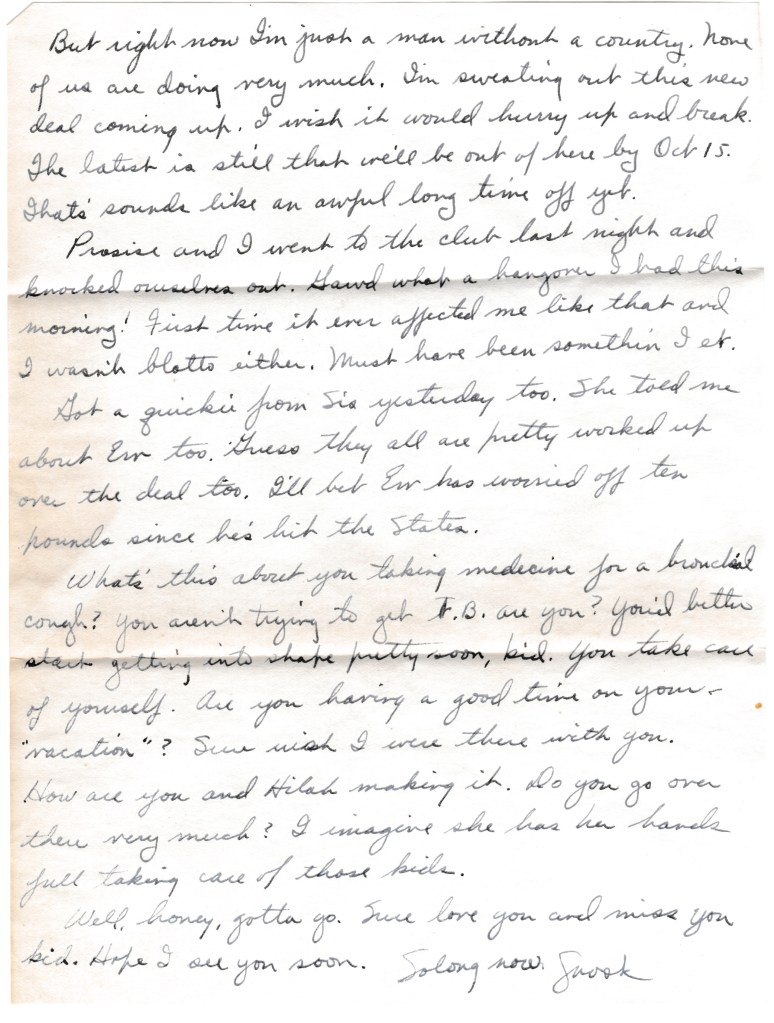 But right now I'm just a man without a country. None
of us are doing very much. I'm sweating out this new
deal coming up. I wish it would hurry up and break.
The latest is still that we'll be out of here by Oct 15.
That's sounds like an awful long time off yet.
Prosise and I went to the club last night and
knocked ourselves out. Gawd what a hangover I had this
morning! First time it ever affected me like that and
I wasn't blotto either. Must have been somethin I et.
Got a quickie from Sis yesterday too. She told me
about Erv too. Guess they all are pretty worked up
over the deal too. I'll bet Erv has worried off ten
pounds since he's hit the States.
What's this about you taking medicine for a bronchial
cough? You aren't trying to get T.B. are you? You'd better
start getting into shape pretty soon, kid. You take care
of yourself. Are you having a good time on your
"vacation"? Sure wish I were there with you.
How are you and Hilah making it. Do you go over
there very much? I imagine she has her hands
full taking care of those kids.
Well, honey, gotta go. Sure love you and miss you
kid. Hope I see you soon. Solong now.